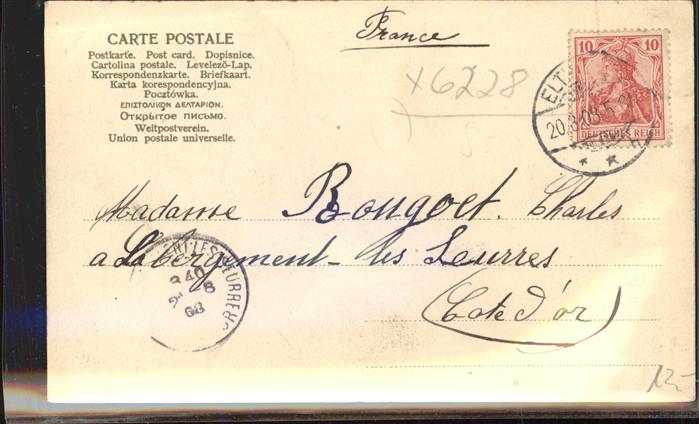 CARTE POSTALE
Postkarte. Post card. Dopisnice.
Cartolina postale. Levelező-Lap.
Korrespondenzkarte. Briefkaart.
Karta korespondencyjna.
Pocztówka.
ΕΠΙΣΤΟΛΙΚΟΝ ΔΕΛΤΑΡΙΟΝ.
Открытое письмо.
Weltpostverein.
Union postale universelle.
France
X6228
8
10 10
DEUTSCHES REICH
ELT
20.8.08.5-6N
Madame Bougeot. Charles
a Labergement-les Seurres
(Cote d'or)
340
8
08
12-